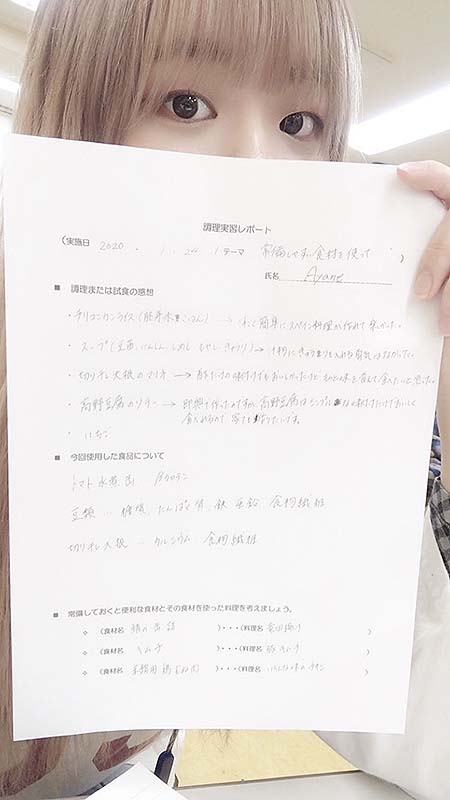 調理実習レポート
(実施日 2020 . 1 . 24 ) テーマ 常備しやすい食材を使って )
氏名 Ayane
■ 調理または試食の感想
・チリコンカンライス( ごはん) → 簡単にスペイン料理が作れて楽しかった。
・スープ(豆苗、にんじん、しめじ、もやし、きゅうり) → きゅうりを入れる勇気はなかった。
・切り干し大根の → 味付けでもおいしかったけど を変えて食べたいと思った。
・高野豆腐の → 高野豆腐はシンプルな味付けだけでおいしく
食べれるので 家でも作りたいです。
・いちご
■ 今回使用した食品について
トマト水煮缶 βカロテン
豆類 … 糖質、たんぱく質、鉄、亜鉛、食物繊維
切り干し大根 … カルシウム、食物繊維
■ 常備しておくと便利な食材とその食材を使った料理を考えましょう。
❖ (食材名 鯖の缶詰 )・・・(料理名 竜田揚げ )
❖ (食材名 キムチ )・・・(料理名 豚キムチ )
❖ (食材名 業務用鶏もも肉 )・・・(料理名 いろんな味のチキン )